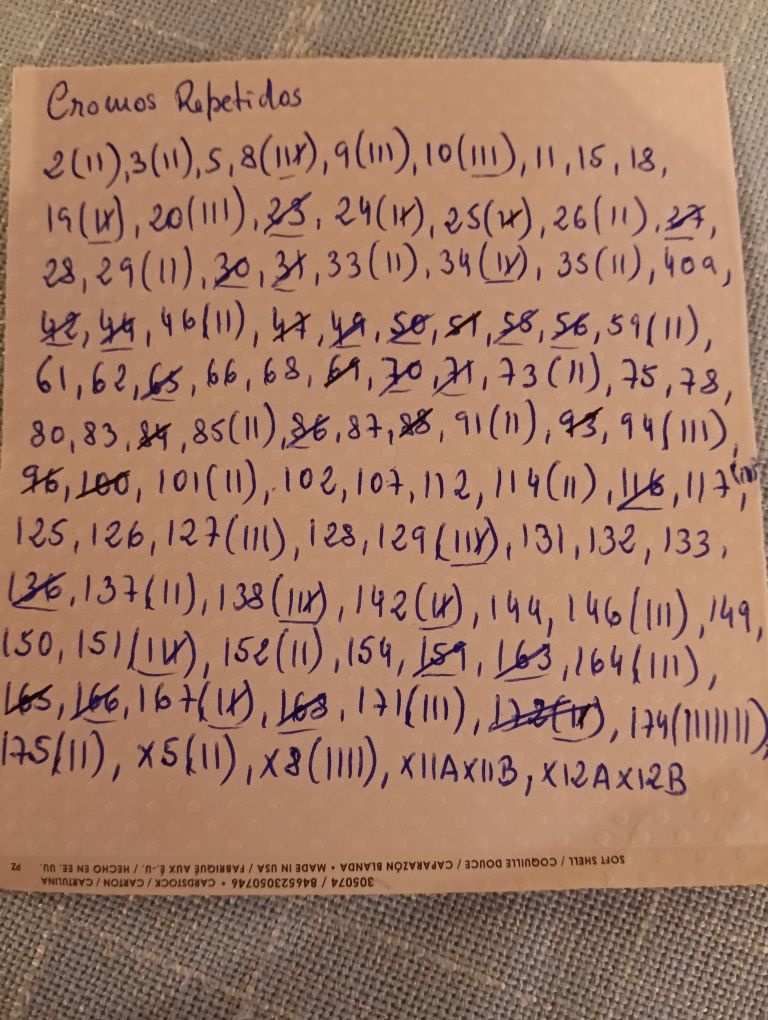 Cromos Repetidos
2(11),3(11),5,8(11X),9(111),10(111),11,15,18,
19(1X),20(111),23,24(1X),25(1X),26(11),27,
28,29(11),30,31,33(11),34(1X),35(11),409,
42,44,46(11),47,49,50,51,55,56,59(11),
61,62,65,66,68,69,70,71,73(11),75,78,
80,83,84,85(11),86,87,88,91(11),93,94(111),
96,100,101(11),102,107,112,114(11),116,117,
125,126,127(111),128,129(11X),131,132,133,
136,137(11),138(11X),142(1X),144,146(111),149,
150,151(11X),152(11),154,159,163,164(111),
165,166,167(1X),168,171(111),172(1X),174(1111111),
175(11), X5(11), X8(1111), X11AX11B, X12AX12B
SOFT SHELL / COQUILLE DOUCE / CAPARAZÓN BLANDA • MADE IN USA / FABRIQUÉ AUX É.-U. / HECHO EN EE. UU. PZ
305074 / 846523050746 • CARDSTOCK / CARTON / CARTULINA